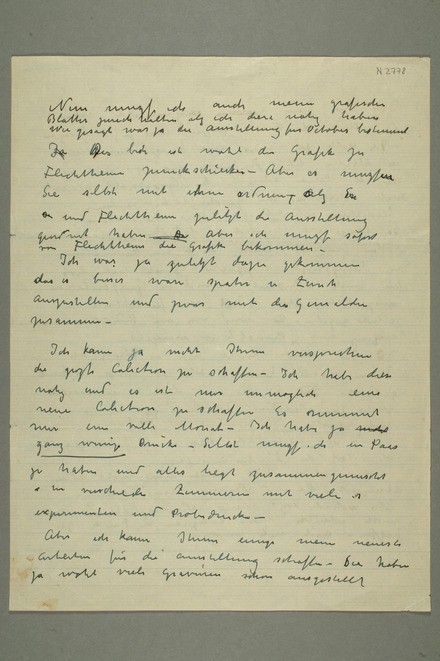 N 2778
Nun mussf ich auch meine grafischen
Blatter zuruck halten als ich diese notig haben
Wie gesagt war ja die Ausstellung fur October bestimmt
ich wohl die Grafik zu
Flechtheim zuruckschicken - Aber es
Sie selbst mit ihm ordnen als Sie
und Flechtheim zuletzt die Ausstellung
haben Aber ich sofort
von Flechtheim die Grafik bekommen -
Ich war ja zuletzt gekommen
das es besser ware spater in Zurich
auszustellen und zwar mit die Gemalden
zusammen -
Ich kann ja nicht Ihnen versprechen
die Colection zu schaffen - Ich habe diese
notig und es ist mir unmoglich eine
neue Colection zu schaffen Es nimmt
mir eine volle Monat - Ich habe ja
ganz wenige Drücke - Selbst ich in Paris
zu haben und alles liegt zusammengemischt
in verschiedene Zimmern mit viele
experimenten und Probedrucke -
Aber ich kann Ihnen einige meine neueste
Arbeiten für die Ausstellung schaffen - Sie haben
ja wohl viele Gravüren schon ausgestellt